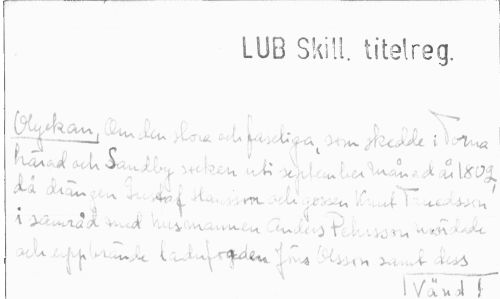 LUB Skill. titelreg.
Olyckan, Om den stora och faseliga, som skedde i Torna
härad och Sandby socken uti september månad år 1809,
då drängen Gustaf Hansson och gossen Knut
i samråd med husmannen Anders Pehrsson mördade
och uppbrände ladufogden Jöns Olsson samt dess
Vänd!